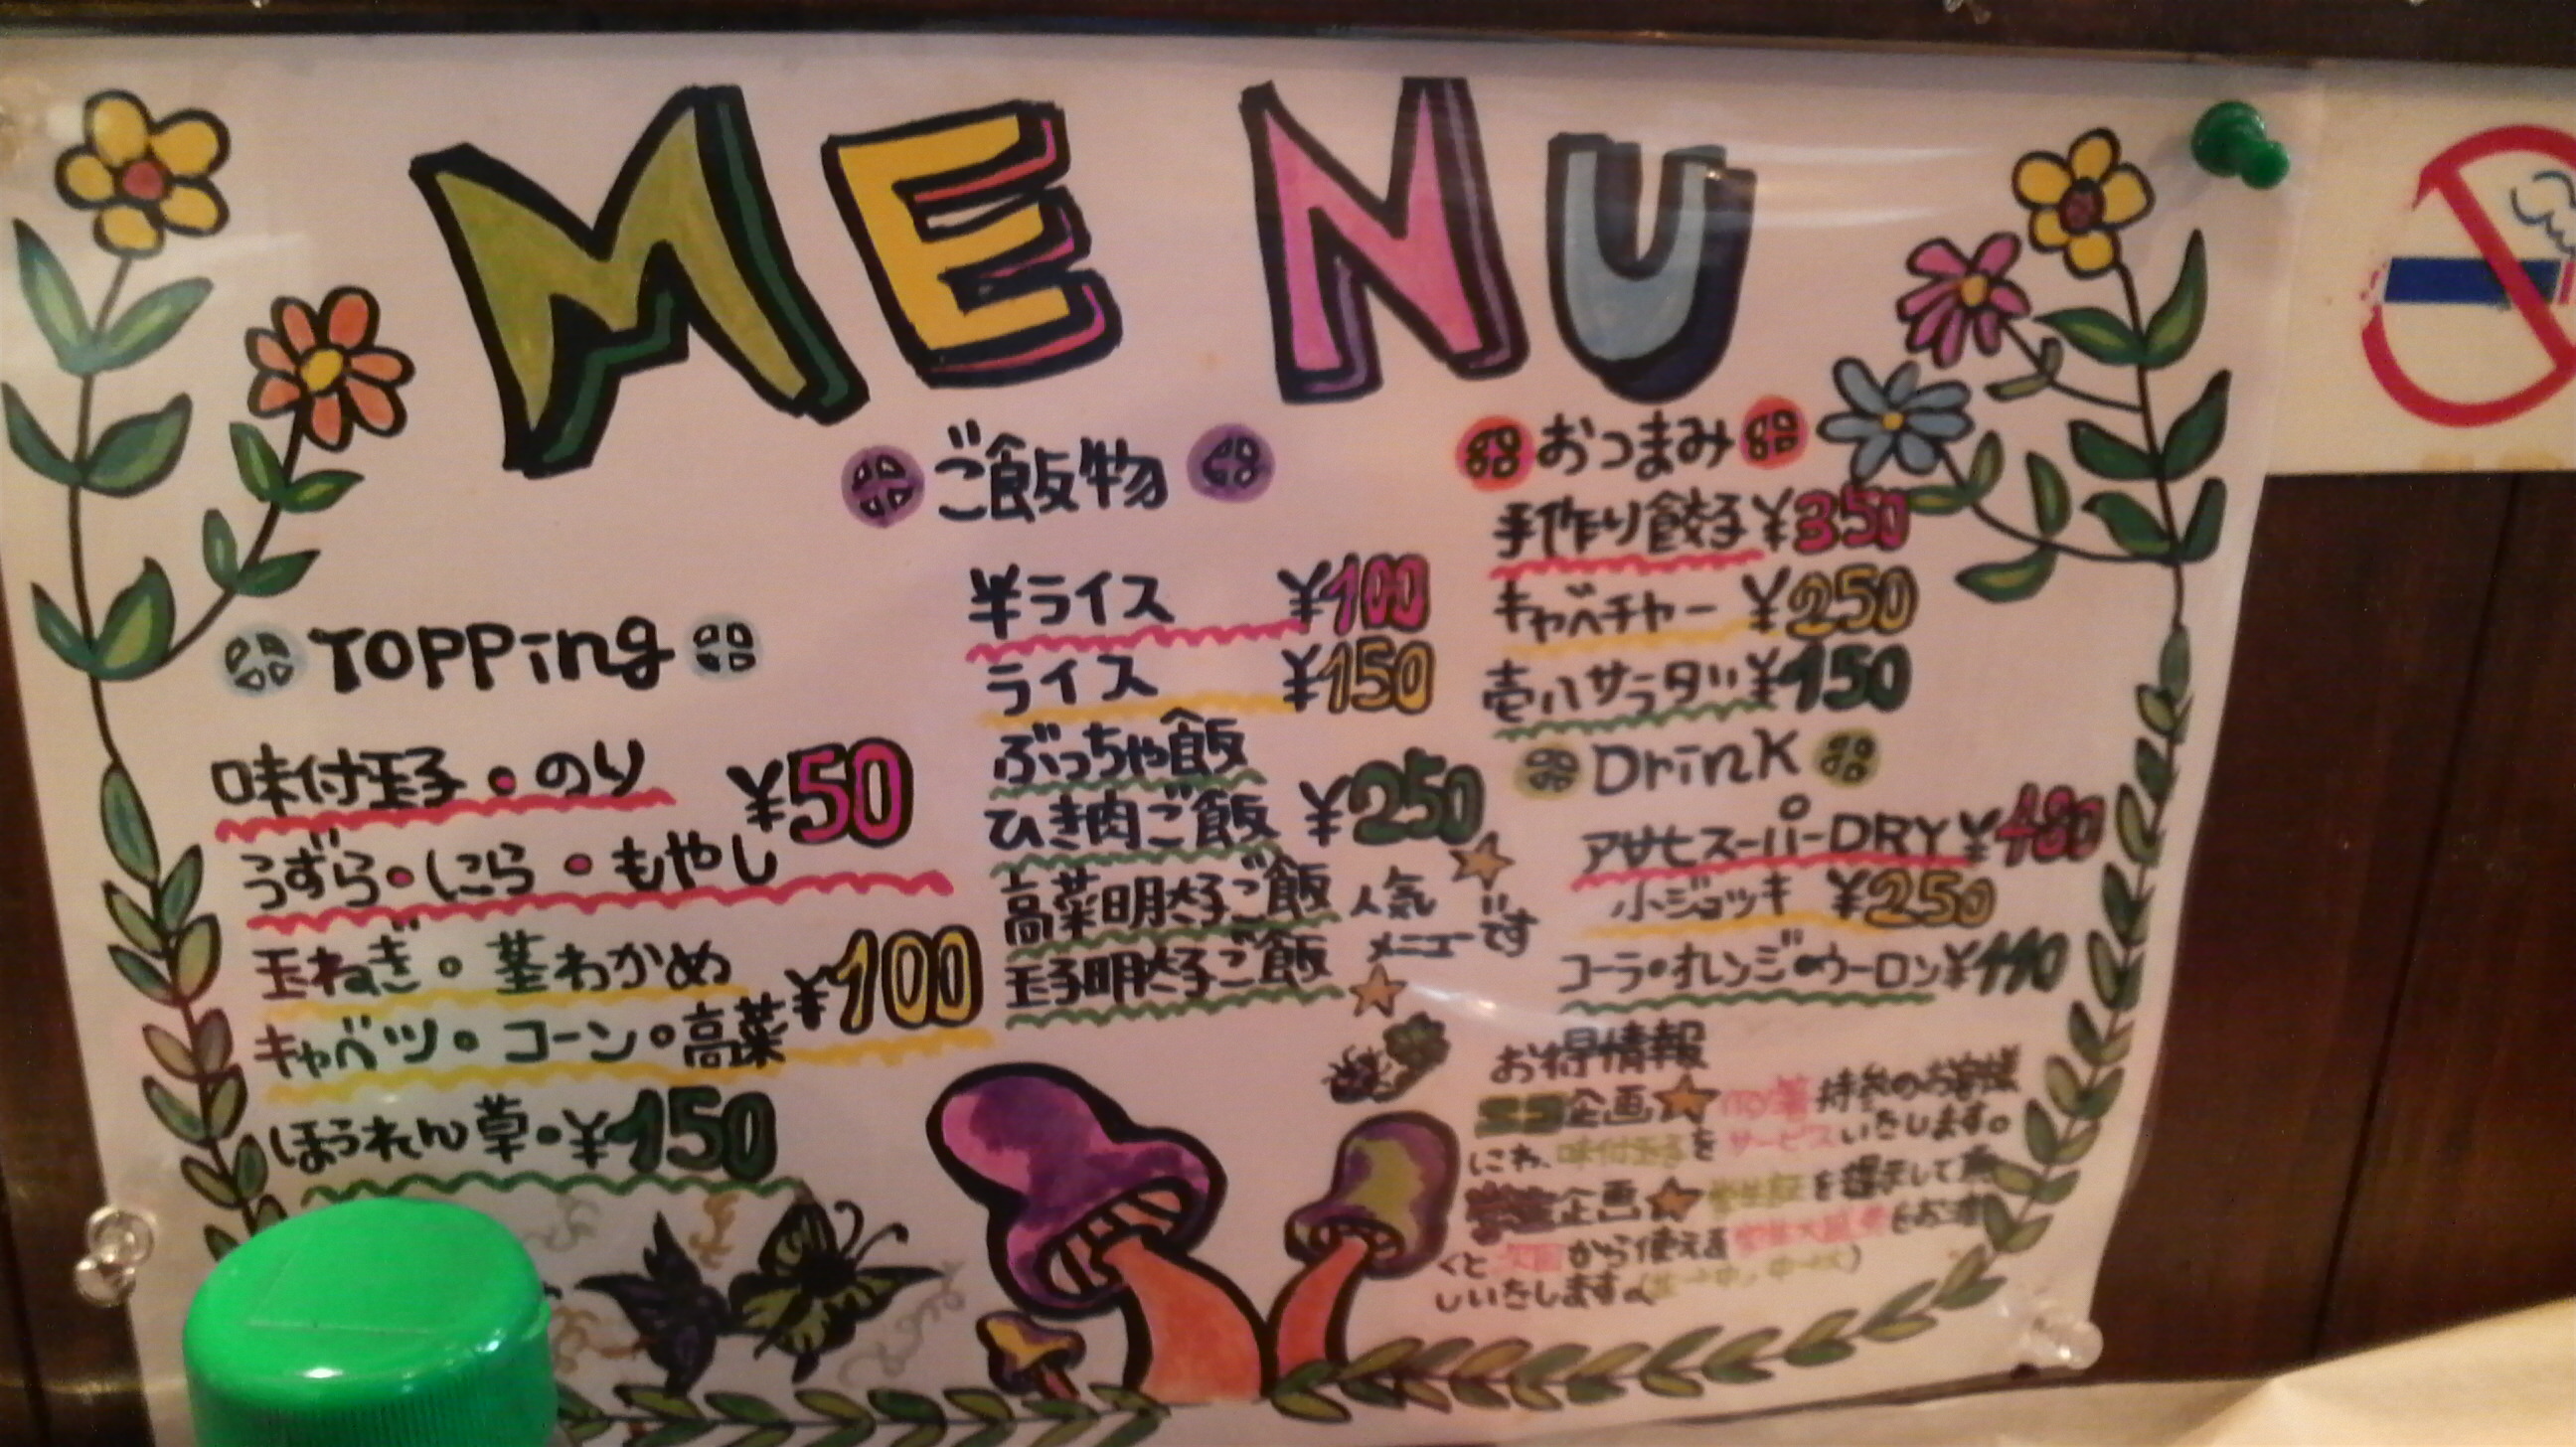 MENU
Topping
味付玉子・のり ¥50
うずら・にら・もやし
玉ねぎ・茎わかめ ¥100
キャベツ・コーン・高菜
ほうれん草・¥150
ご飯物
半ライス ¥100
ライス ¥150
ぶっちゃ飯
ひき肉ご飯 ¥250
高菜明太子ご飯
玉子明太子ご飯
人気
メニューです
おつまみ
手作り餃子 ¥350
キャベチャー ¥250
壱八サラダ ¥150
Drink
アサヒスーパーDRY ¥480
小ジョッキ ¥250
コーラ・オレンジ・ウーロン ¥110
お得情報
エコ企画☆my箸持参のお客様
にわ、味付玉子をサービスいたします。
企画☆学生証を提示して
くと次回から使える
しいたします。